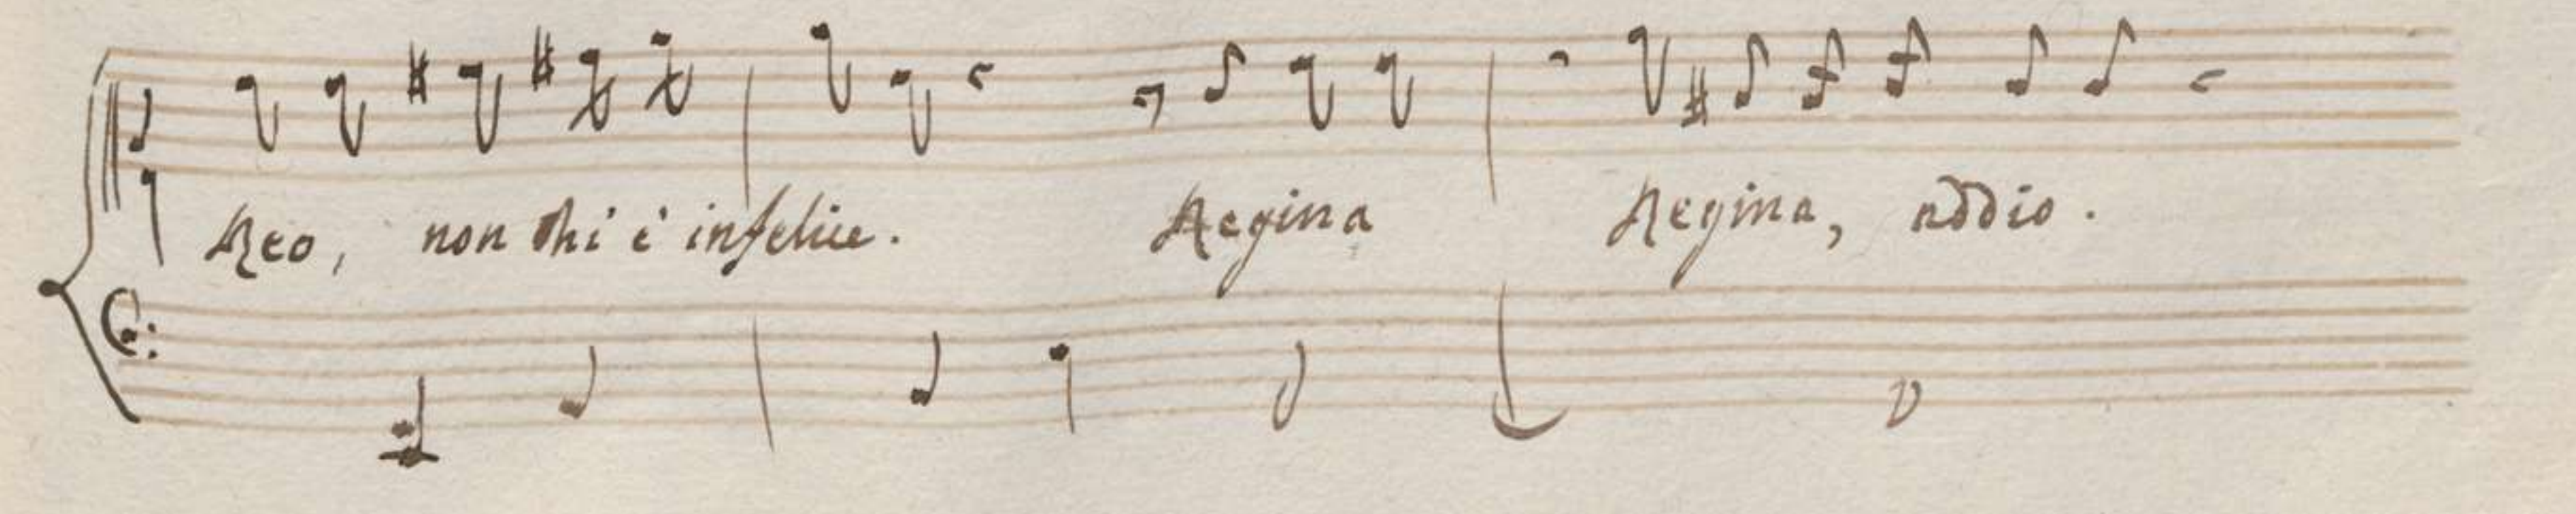 Reo, non chi è infelice. Regina Regina, addio.